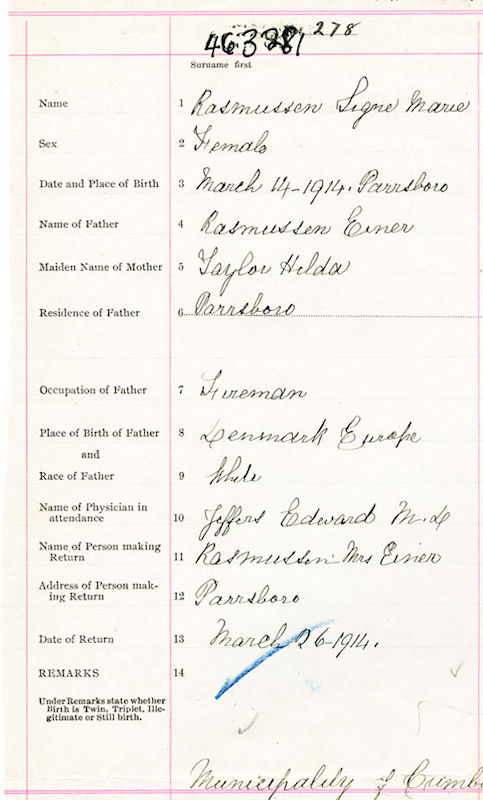 278
463281
Surname first
Name 1 Rasmussen Signe Marie
Sex 2 Female
Date and Place of Birth 3 March 14-1914. Parrsboro
Name of Father 4 Rasmussen Einer
Maiden Name of Mother 5 Taylor Hilda
Residence of Father 6 Parrsboro
Occupation of Father 7 Fireman
Place of Birth of Father 8 Denmark Europe
and
Race of Father 9 White
Name of Physician in
attendance 10 Jeffers Edward M.D
Name of Person making
Return 11 Rasmussen Mrs Einer
Address of Person mak-
ing Return 12 Parrsboro
Date of Return 13 March 26-1914.
REMARKS 14
Under Remarks state whether
Birth is Twin, Triplet, Ille-
gitimate or Still birth.
Municipality of Cumb